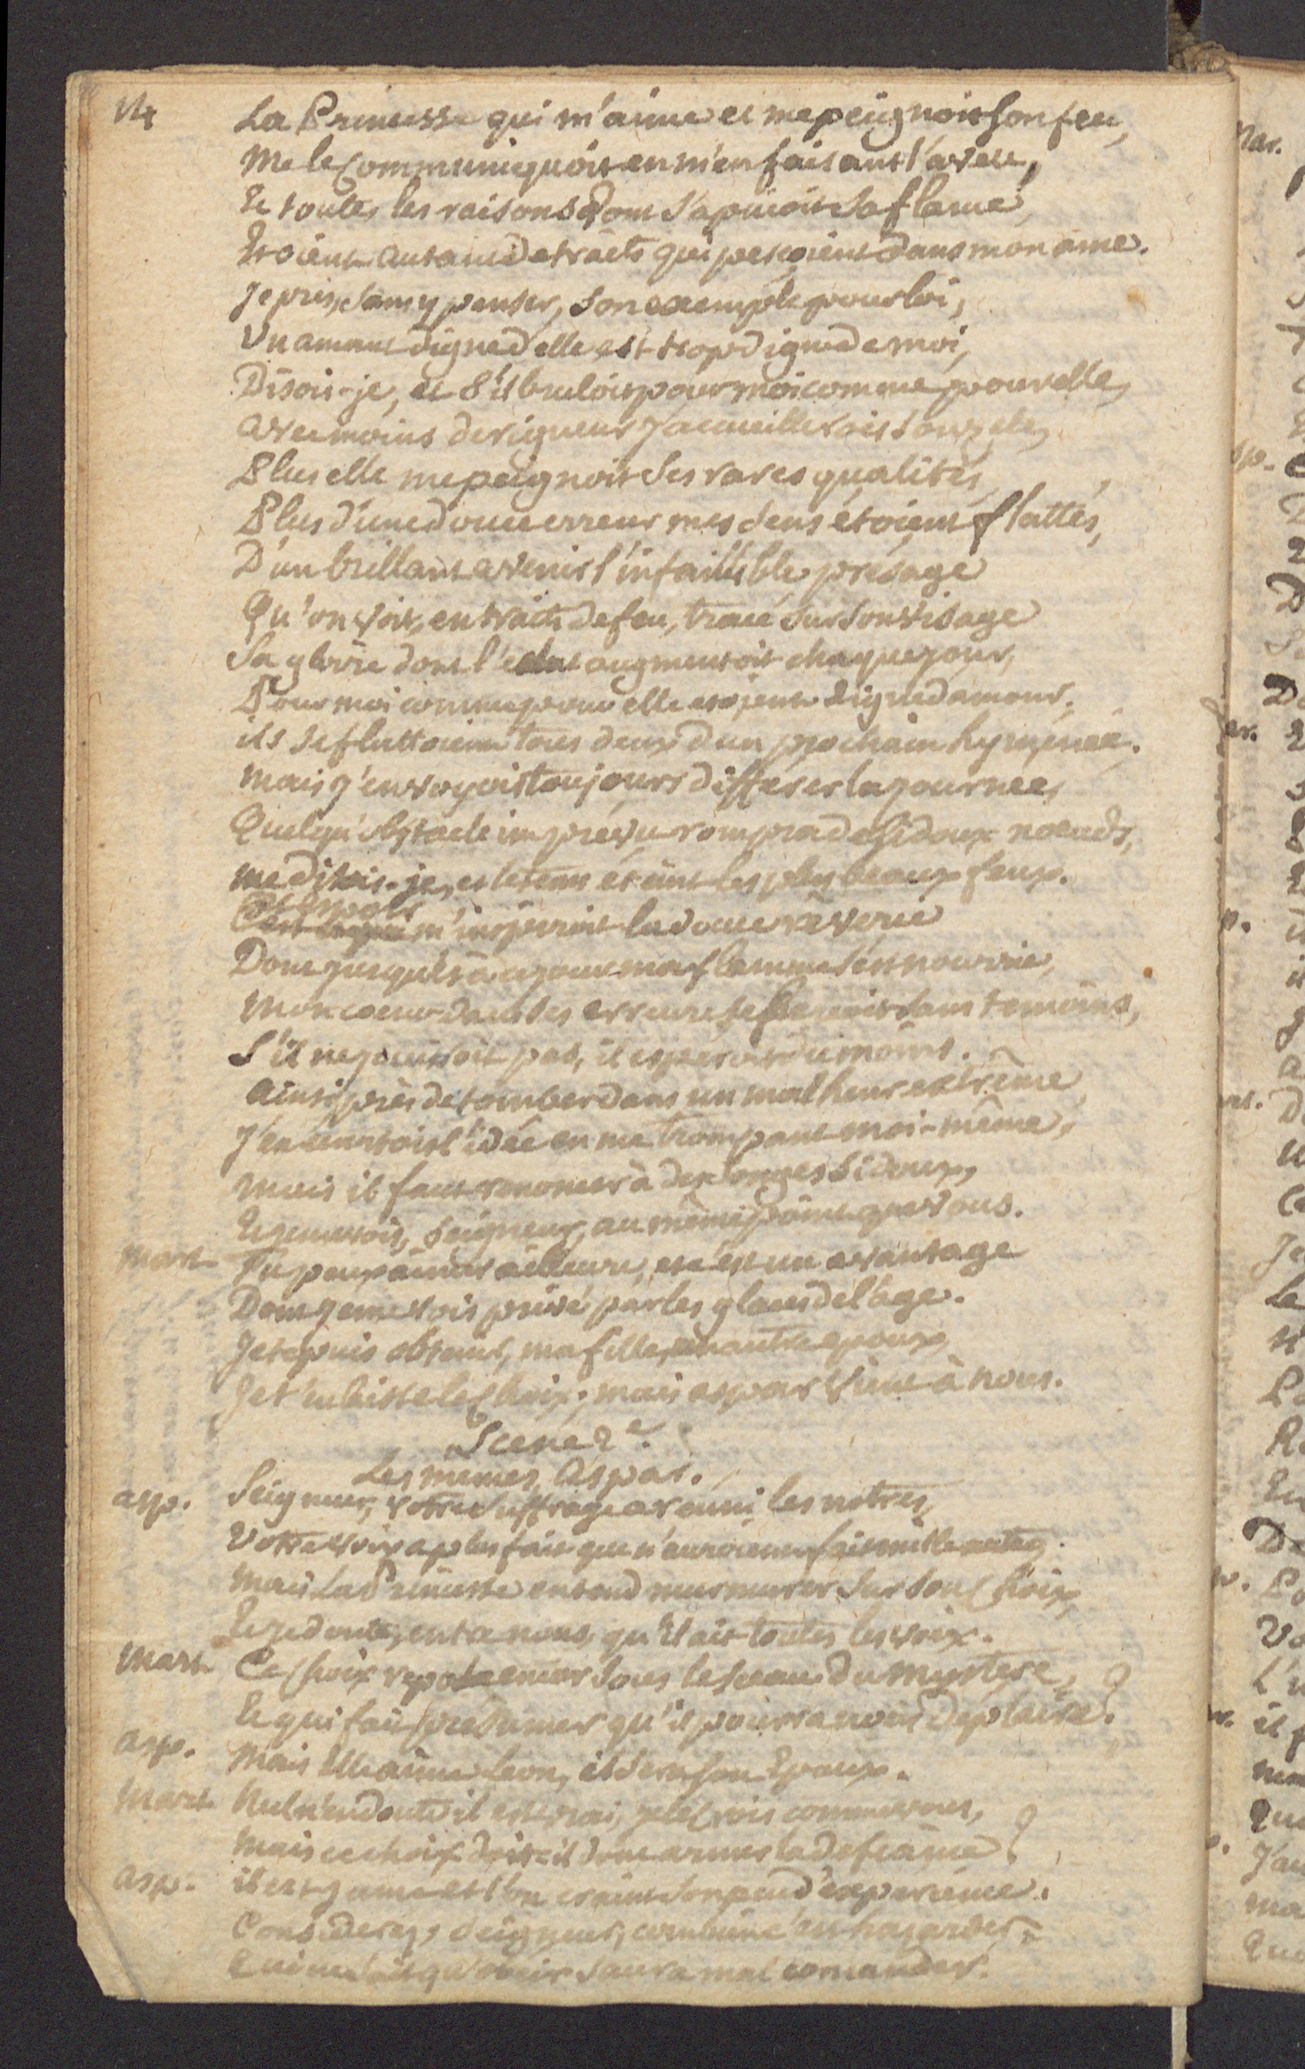 14
La Princesse qui m'aime et me peignoit son feu,
Me le communiquoit en m'en faisant l'aveu,
Et toutes les raisons dont s'apuioit sa flame
Etoient autant de traits qui perçoient dans mon ame.
Je pris, sans y penser, son exemple pour loi,
Un amant digne d'elle est trop digne de moi,
Disois-je, et s'il bruloit pour moi comme pour elle,
avec moins de rigueur j'accueillerois son zele,
Plus elle me peignoit ses rares qualités
Plus d'une douce erreur mes sens étoient flattés,
D'un brillant avenir l'infaillible présage
Qu'on voit, en traits de feu, tracé sur son visage
Sa gloire dont l'éclat augmentoit chaque jour,
Pour moi comme pour elle etoient digne d'amour.
ils se flattoient tous deux d'un prochain hymenée.
mais j'en voyois toujours differer la journée,
Quelqu'obstacle imprévu rompra de si doux noeuds,
me disois-je, et le tems éteint les plus beaux feux.
Cet espoir m'inspiroit la douce rêverie
Dont jusques à ce jour ma flamme s'est nourrie,
Mon coeur dans ses erreurs se sans temoins,
S'il ne jouissoit pas, il esperoit du moins.
Ainsi près de tomber dans un malheur extrême
J'en écartois l'idée en me trompant moi-même,
Mais il faut renoncer à des songes si doux,
Et je me vois, Seigneur, au même point que vous.
Mart. Tu peux aimer ailleurs, et c'est un avantage
Dont je me vois privé par les glaces de l'âge.
Je te puis obtenir, ma fille, un autre epoux,
Je t'en laisse le choix; mais aspar vient à nous.
Scene 2e.
Les memes, Aspar.
asp. Seigneur, votre suffrage a reuni les notres,
Votre voix a plus fait que n'auroient fait mille autres.
Mais la Princesse entend murmurer sur son choix,
Et je doute, entre nous, qu'il ait toutes les voix.
Mart. Ce choix repose encor sous le sceau du mystere,
Et qui fait présumer qu'il pourra nous déplaire?
Asp. Mais Elle aime Leon, il sera son Epoux.
Mart. Nul n'en doute il est vrai, je le crois comme vous,
Mais ce choix doit-il donc armer la defiance?
Asp. il est jeune et l'on craint son peu d'experience.
Considerez, Seigneur, combien c'est hazarder,
Qui ne sait qu'obeir saura mal comander.